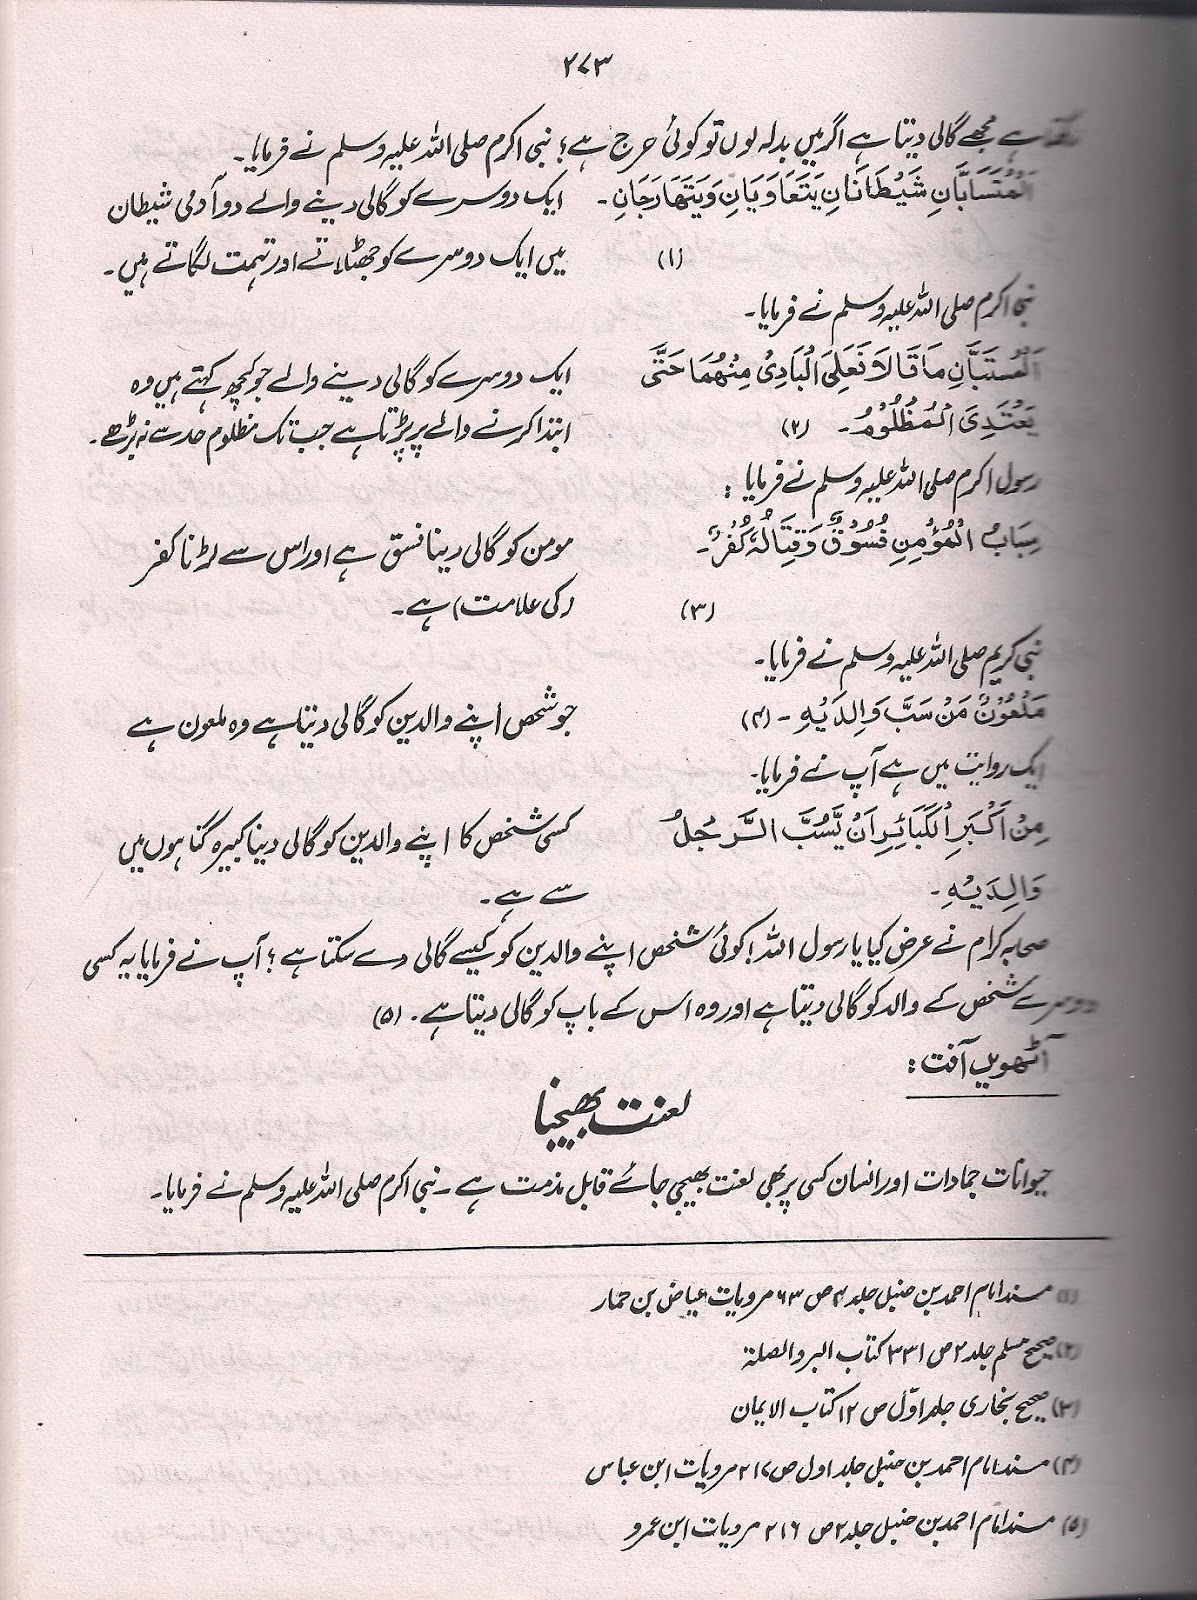 ۲۷۳
ہے مجھے گالی دیتا ہے اگر میں بدلہ لوں تو کوئی حرج ہے؛ نبی اکرم صلی اللہ علیہ وسلم نے فرمایا۔
اَلْمُتَسَابَّانِ شَيْطَانَانِ يَتَعَاوَيَانِ وَيَتَهَارَجَانِ۔ ایک دوسرے کو گالی دینے والے دو آدمی شیطان
(۱) ہیں ایک دوسرے کو جھٹلاتے اور تہمت لگاتے ہیں۔
نبی اکرم صلی اللہ علیہ وسلم نے فرمایا۔
اَلْمُسْتَبَّانِ مَا قَالَا فَعَلَى الْبَادِئُ مِنْهُمَا حَتَّى ایک دوسرے کو گالی دینے والے جو کچھ کہتے ہیں وہ
يَعْتَدِىَ الْمَظْلُوْمُ۔ (۲) ابتدا کرنے والے پر پڑتا ہے جب تک مظلوم حد سے نہ بڑھے۔
رسول اکرم صلی اللہ علیہ وسلم نے فرمایا:
سِبَابُ الْمُؤْمِنِ فُسُوْقٌ وَقِتَالُهٗ كُفْرٌ۔ مومن کو گالی دینا فسق ہے اور اس سے لڑنا کفر
(۳) (کی علامت) ہے۔
نبی کریم صلی اللہ علیہ وسلم نے فرمایا۔
مَلْعُوْنٌ مَنْ سَبَّ وَالِدَيْهِ۔ (۴) جو شخص اپنے والدین کو گالی دیتا ہے وہ ملعون ہے
ایک روایت میں ہے آپ نے فرمایا۔
مِنْ اَكْبَرِ الْكَبَائِرِ اَنْ يَّسُبَّ الرَّجُلُ کسی شخص کا اپنے والدین کو گالی دینا کبیرہ گناہوں میں
وَالِدَيْهِ۔ سے ہے۔
صحابہ کرام نے عرض کیا یا رسول اللہ! کوئی شخص اپنے والدین کو کیسے گالی دے سکتا ہے؛ آپ نے فرمایا یہ کسی
دوسرے شخص کے والد کو گالی دیتا ہے اور وہ اس کے باپ کو گالی دیتا ہے۔ (۵)
آٹھویں آفت:
لعنت بھیجنا
حیوانات جمادات اور انسان کسی پر بھی لعنت بھیجی جائے قابل مذمت ہے۔ نبی اکرم صلی اللہ علیہ وسلم نے فرمایا۔
(۱) مسند امام احمد بن حنبل جلد ۴ ص ۶۳ مرویات عیاض بن حمار
(۲) صحیح مسلم جلد ۲ ص ۳۳۱ کتاب البر والصلۃ
(۳) صحیح بخاری جلد اوّل ص ۱۲ کتاب الایمان
(۴) مسند امام احمد بن حنبل جلد اول ص ۲۱۷ مرویات ابن عباس
(۵) مسند امام احمد بن حنبل جلد ۲ ص ۲۱۶ مرویات ابن عمرو